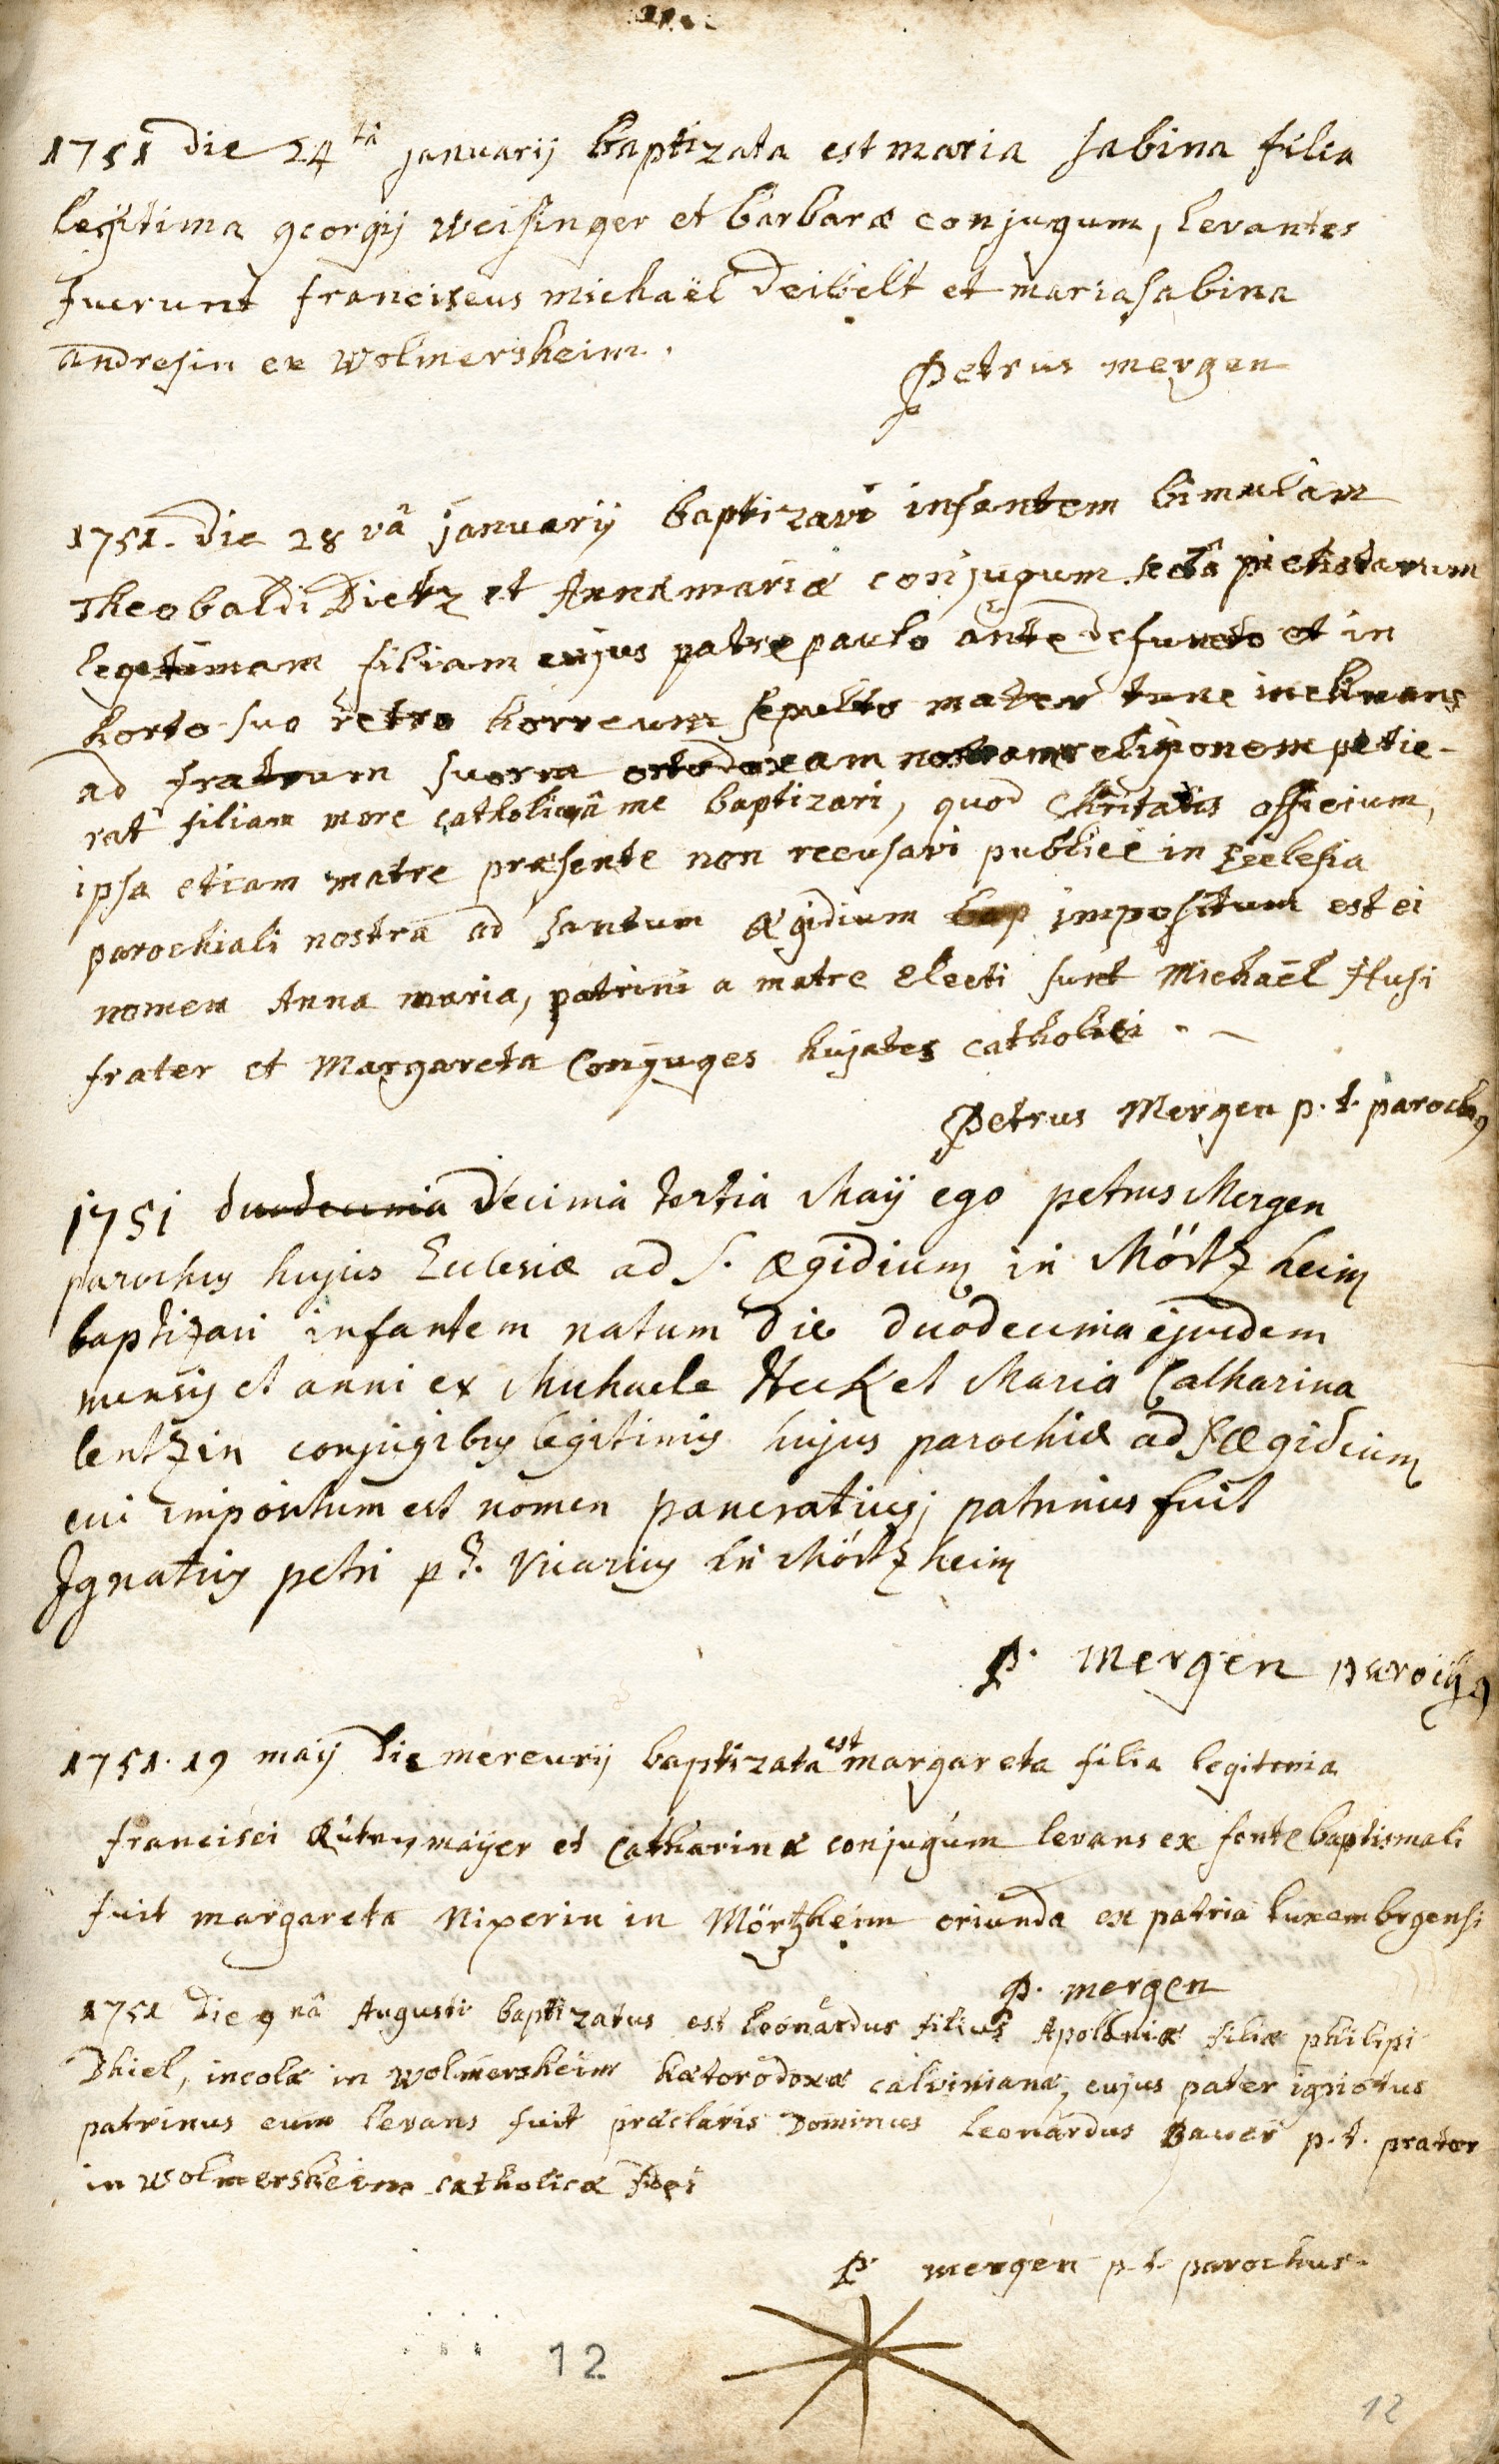 1751 die 24tâ januarij baptizata est maria sabina filia
legitima georgij Weisinger et barbaræ conjugum, levantes
fuerunt franciscus michaël Deibelt et maria sabina
andresin ex Wolmersheim.
Petrus mergen
1751. die 28vâ januarij baptizavi infantem bimulam
Theobaldi Dietz et Annæ mariæ conjugum sectâ pietistarum
legitimam filiam cujus patre paulo ante defuncto et in
horto suo retro horreum sepulto mater tunc inclinans
ad fratrum suorm ortodoxam nostram religionem petie-
rat filiam more catholico â me baptizari, quod Chritatis officium,
ipsa etiam matre præsente non recusavi publicè in Ecclesia
parochiali nostra ad santum ægidium bap impositum est ei
nomen Anna maria, patrini a matre electi sunt Michaël Husi
frater et Margareta Conjuges hujates catholici.
Petrus Mergen p. t. parochus
1751 duodecima Decima tertia Maij ego petrus Mergen
parochus hujus Ecclesiæ ad S. ægidium in Mörtzheim
baptizavi infantem natum die duodecima ejusdem
mensis et anni ex Michaele Heck et Maria Catharina
lentzin conjugibus legitimis hujus parochiæ ad S ægidium
cui impositum est nomen pancratius; patrinus fuit
Ignatius petri p t. Vicarius in Mörtzheim
P. mergen parochus
1751. 19 maij die mercurij baptizata est margareta filia legitima
francisci maijer et Catharinæ conjugum levans ex fonte baptismali
fuit margareta Nixperin in Mörtzheim oriunda ex patria luxembrgensi
P. mergen
1751 die 9nâ Augusti baptizatus est leonardus filius Apoloniæ filiæ philipi
Dhiel, incolæ in Wolmersheim hætorodoxæ calvinianæ, cujus pater ignotus
patrinus eum levans fuit præclaris Dominus leonardus Bauer p. t. prætor
in Wolmersheim catholicæ fidei
P mergen p. t. parochus.
12
12